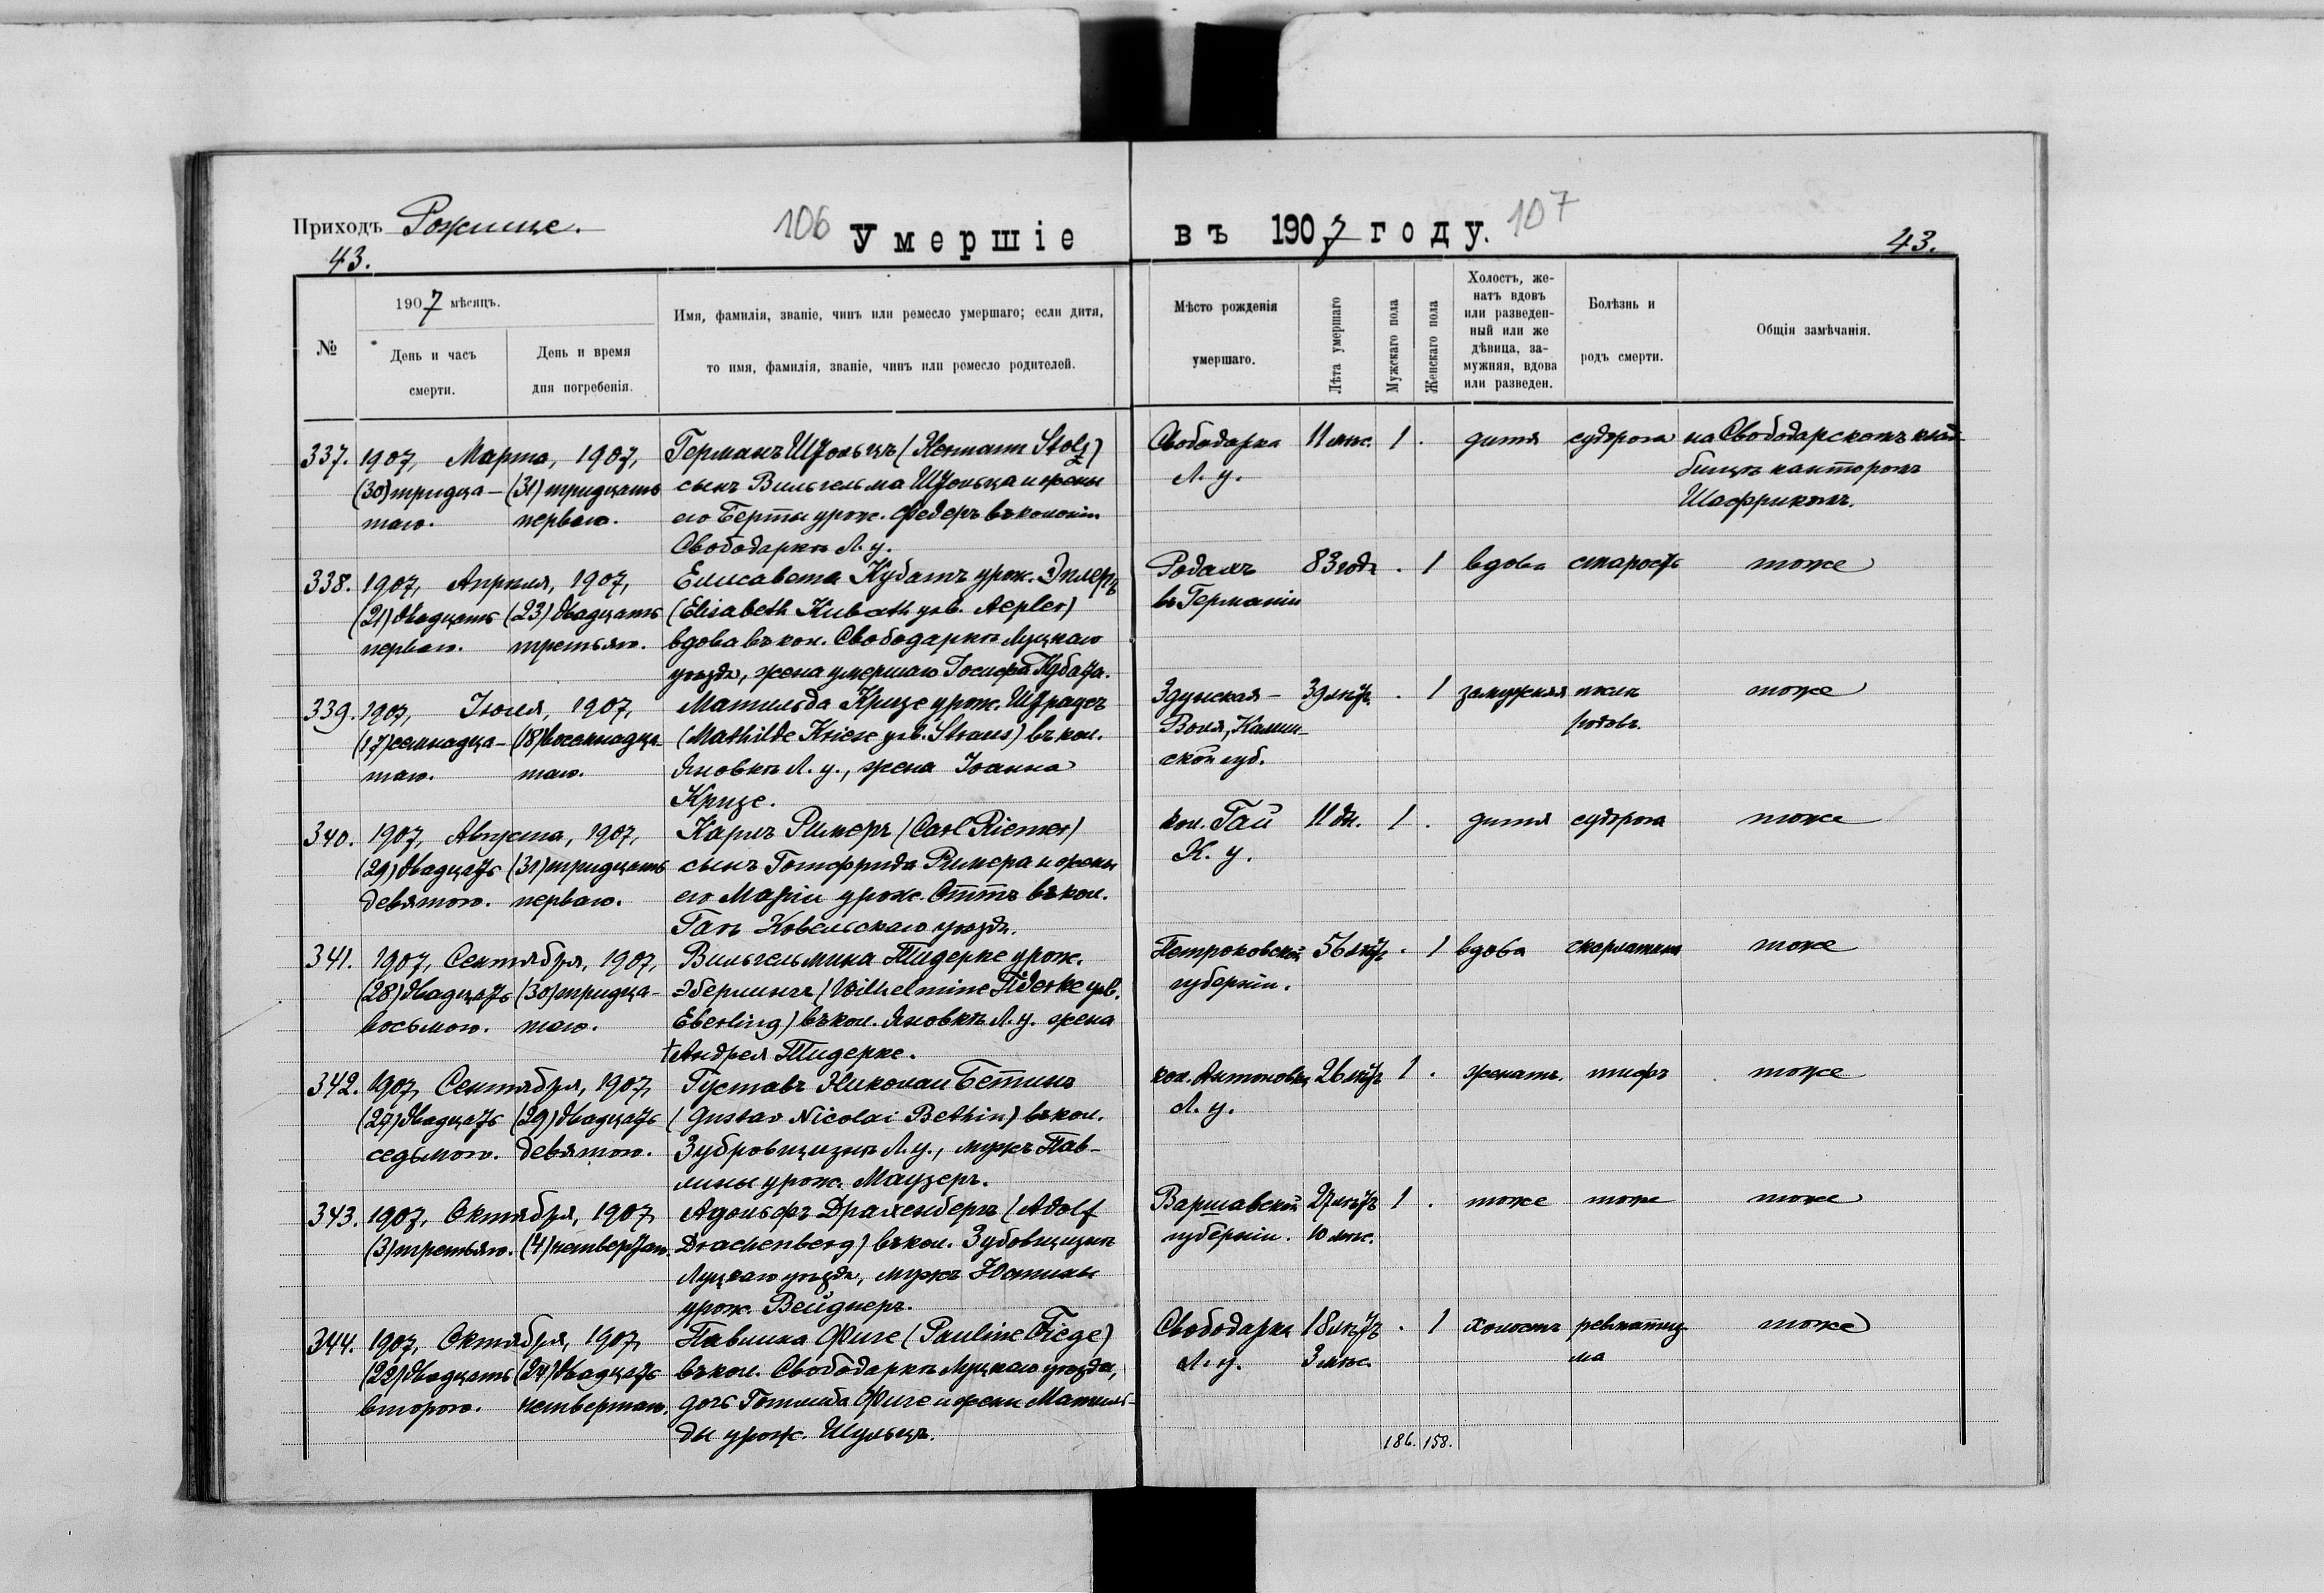 Приходъ Рожище.
106
Умершіе
въ 1907 году.
107
43.
43.
№
1907 мѣсяцъ.
День и часъ
смерти.
День и время
дня погребенія.
Имя, фамилія, званіе, чинъ или ремесло умершаго; если дитя,
то имя, фамилія, званіе, чинъ или ремесло родителей.
Мѣсто рожденія
умершаго.
Лѣта умершаго
Мужскаго пола
Женскаго пола
Холостъ, же-
натъ вдовъ
или разведен-
ный или же
дѣвица, за-
мужняя, вдова
или разведен.
Болѣзнь и
родъ смерти.
Общія замѣчанія.
337. 1907, Марта, 1907, Германъ Штольцъ (Hermann Stolz) Свободарка 11 мѣс. 1 . дитя судорога на Свободарскомъ клад-
(30) тридца- (31) тридцать сынъ Вильгельма Штольца и жены Л. у. бищѣ канторомъ
таго. перваго. его Берты урож. Федеръ въ колоніи Шаффрикомъ.
Свободаркѣ Л. у.
338. 1907, Апрѣля, 1907, Елисавета Кубатъ урож. Эплеръ Родахъ 83 год. . 1 вдова старость тоже
(21) двадцать (23) двадцать (Elisabeth Kubath geb. Aepler) въ Германіи
перваго. третьяго. вдова въ кол. Свободаркѣ Луцкаго
уѣзда, жена умершаго Іосифа Кубата.
339. 1907, Іюля, 1907, Матильда Кризе урож. Штраусъ Здунская- 39 лѣтъ . 1 замужняя послѣ тоже
(17) семнадца- (18) восемнадца- (Mathilde Kriese geb. Straus) въ кол. Воля, Калиш- родовъ.
таго. таго. Яновкѣ Л. у., жена Іоанна ской губ.
Кризе.
340. 1907, Августа, 1907, Карлъ Римеръ (Carl Riemer) кол. Гай 11 дн. 1 . дитя судорога тоже
(29) двадцать (31) тридцать сынъ Готфрида Римера и жены К. у.
девятого. перваго. его Маріи урож. Оттъ въ кол.
Гаѣ Ковельскаго уѣзда.
341. 1907, Сентября, 1907, Вильгельмина Тидерке урож. Петроковской 56 лѣтъ . 1 вдова скарлатина тоже
(28) двадцать (30) тридца- Эберлингъ (Wilhelmine Tiderke geb. губерніи.
восьмого. таго. Eberling) въ кол. Яновкѣ Л. у. жена
† Андрея Тидерке.
342. 1907, Сентября, 1907, Густавъ Николаи Бетинъ кол. Антоновка 26 лѣтъ 1 . женатъ. тифъ тоже
(27) двадцать (29) двадцать (Gustav Nicolai Bethin) въ кол. Л. у.
седьмого. девятого. Зубровщизнѣ Л. у., мужъ Пав-
лины урож. Маузеръ.
343. 1907, Октября, 1907, Адольфъ Драхенбергъ (Adolf Варшавской 27 лѣтъ 1 . тоже тоже тоже
(3) третьяго. (4) четвертаго. Drachenberg) въ кол. Зубовщизнѣ губерніи. 10 мѣс.
Луцкаго уѣзда, мужъ Юстины
урож. Вейднеръ.
344. 1907, Октября, 1907, Павлина Фиге (Pauline Fiege) Свободарка 18 лѣтъ . 1 холостъ ревматиз- тоже
(22) двадцать (24) двадцать въ кол. Свободаркѣ Луцкаго уѣзда, Л. у. 3 мѣс. ма
второго. четвертаго. дочь Готлиба Фиге и жены Матиль-
ды урож. Шульцъ.
186. 158.